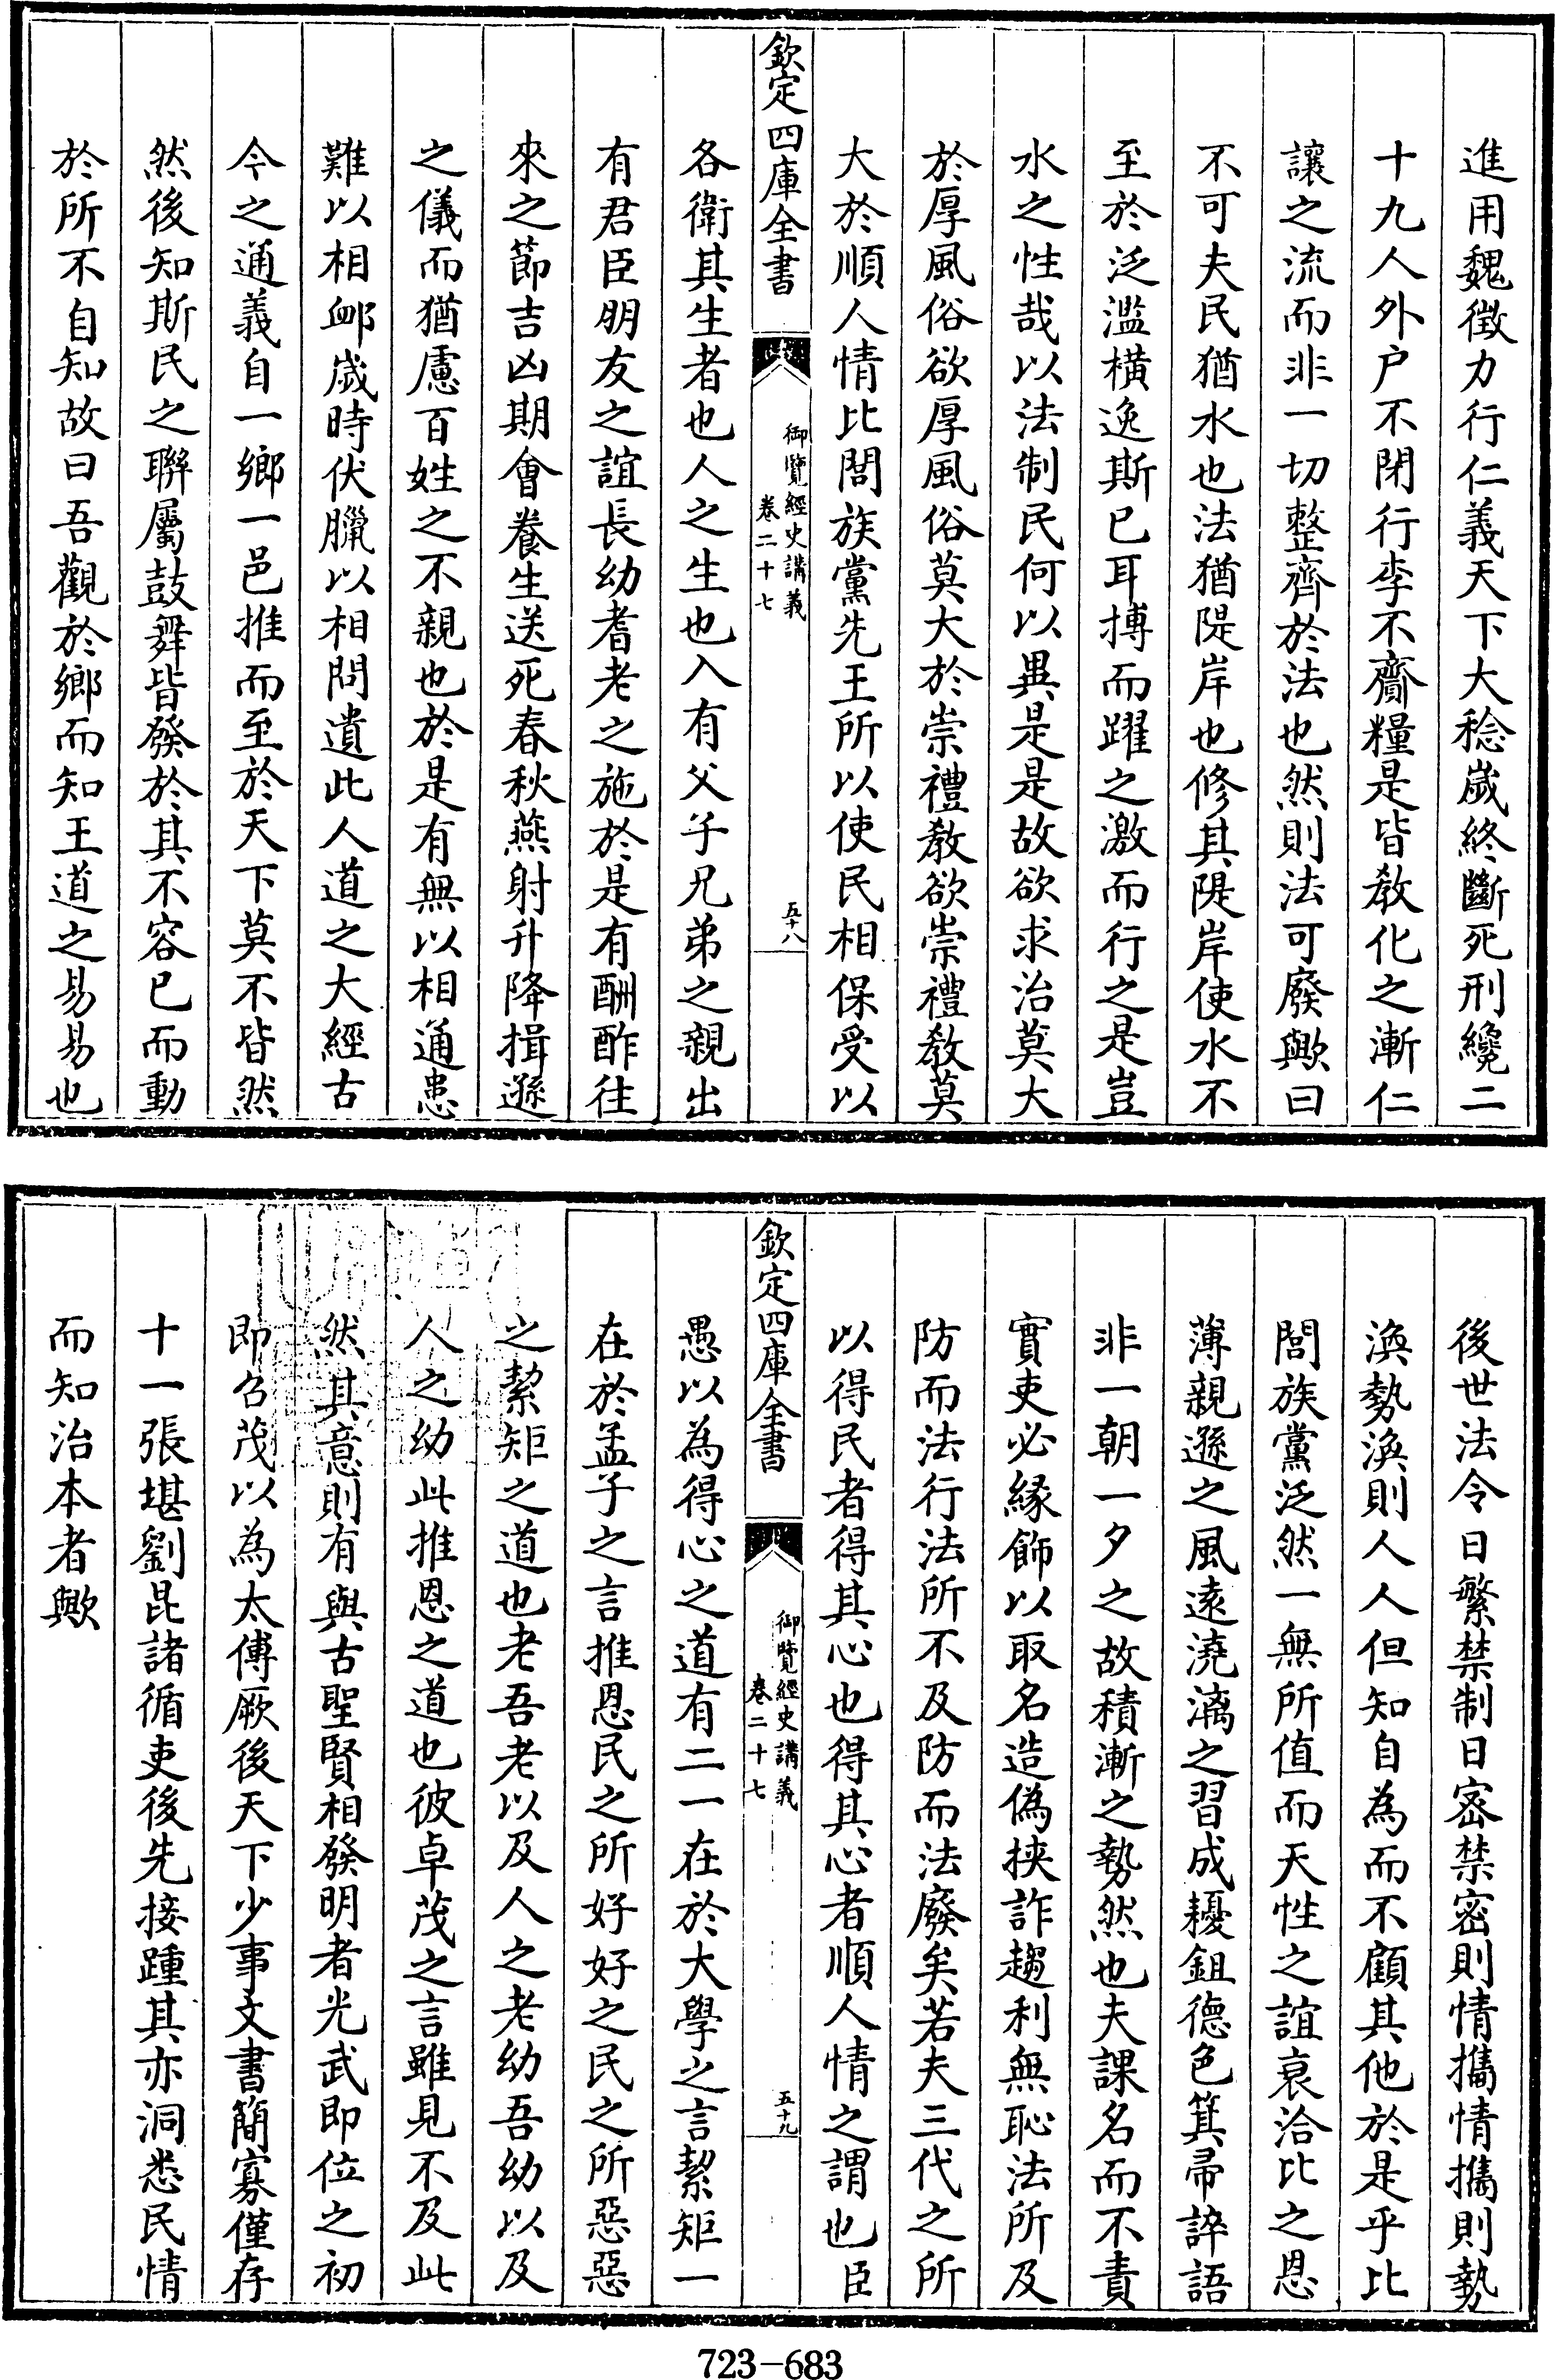 進用魏徵力行仁義天下大稔歲終斷死刑纔二
十九人外户不閉行李不齎糧是皆教化之漸仁
讓之流而非一切整齊於法也然則法可廢歟曰
不可夫民猶水也法猶隄岸也修其隄岸使水不
至於泛濫橫逸斯已耳搏而躍之激而行之是豈
水之性哉以法制民何以異是是故欲求治莫大
於厚風俗欲厚風俗莫大於崇禮教欲崇禮教莫
大於順人情比閭族黨先王所以使民相保受以
欽定四庫全書
御覽經史講義
卷二十七
五十八
各衛其生者也人之生也入有父子兄弟之親出
有君臣朋友之誼長幼耆老之施於是有酬酢往
來之節吉凶期會養生送死春秋燕射升降揖遜
之儀而猶慮百姓之不親也於是有無以相通患
難以相卹歲時伏臘以相問遺此人道之大經古
今之通義自一鄉一邑推而至於天下莫不皆然
然後知斯民之聯屬鼓舞皆發於其不容已而動
於所不自知故曰吾觀於鄉而知王道之易易也
後世法令日繁禁制日密禁密則情攜情攜則勢
渙勢渙則人人但知自為而不顧其他於是乎比
閭族黨泛然一無所值而天性之誼衰洽比之恩
薄親遜之風遠澆漓之習成耰鉏德色箕帚誶語
非一朝一夕之故積漸之勢然也夫課名而不責
實吏必緣飾以取名造偽挾詐趨利無恥法所及
防而法行法所不及防而法廢矣若夫三代之所
以得民者得其心也得其心者順人情之謂也臣
欽定四庫全書
御覽經史講義
卷二十七
五十九
愚以為得心之道有二一在於大學之言絜矩一
在於孟子之言推恩民之所好好之民之所惡惡
之絜矩之道也老吾老以及人之老幼吾幼以及
人之幼此推恩之道也彼卓茂之言雖見不及此
然其意則有與古聖賢相發明者光武即位之初
即召茂以為太傅厥後天下少事文書簡寡僅存
十一張堪劉昆諸循吏後先接踵其亦洞悉民情
而知治本者歟
723－683